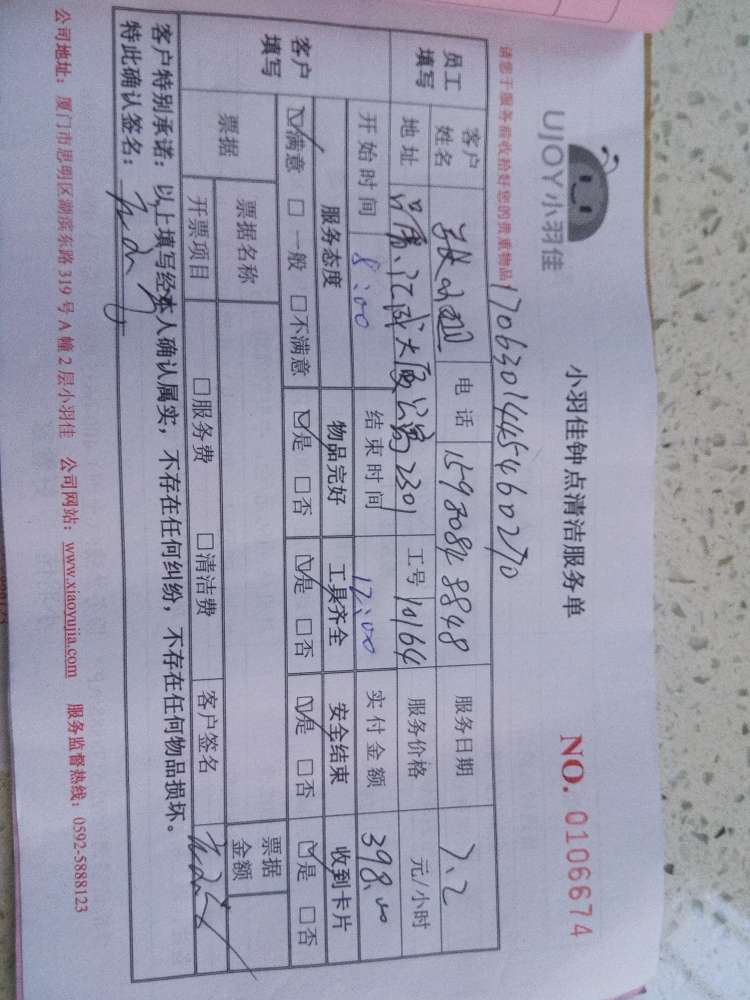 UJOY小羽佳
小羽佳钟点清洁服务单
NO. 0106674
请您于服务前收拾好您的贵重物品!
1706301445460270
员工填写 客户姓名 电话 15980848848 服务日期 7.2
地址 江城大厦公寓2301 工号 10164 服务价格 元/小时
客户填写 开始时间 8:00 结束时间 12:00 实付金额 398.00
服务态度 物品完好 工具齐全 安全结束 收到卡片
☑满意 □一般 □不满意 ☑是 □否 ☑是 □否 ☑是 □否 ☑是 □否
票据 票据名称 票据金额
开票项目 □服务费 □清洁费 客户签名
客户特别承诺:以上填写经本人确认属实,不存在任何纠纷,不存在任何物品损坏。
特此确认签名:
公司地址:厦门市思明区湖滨东路319号A幢2层小羽佳 公司网站:www.xiaoyujia.com 服务监督热线:0592-5888123